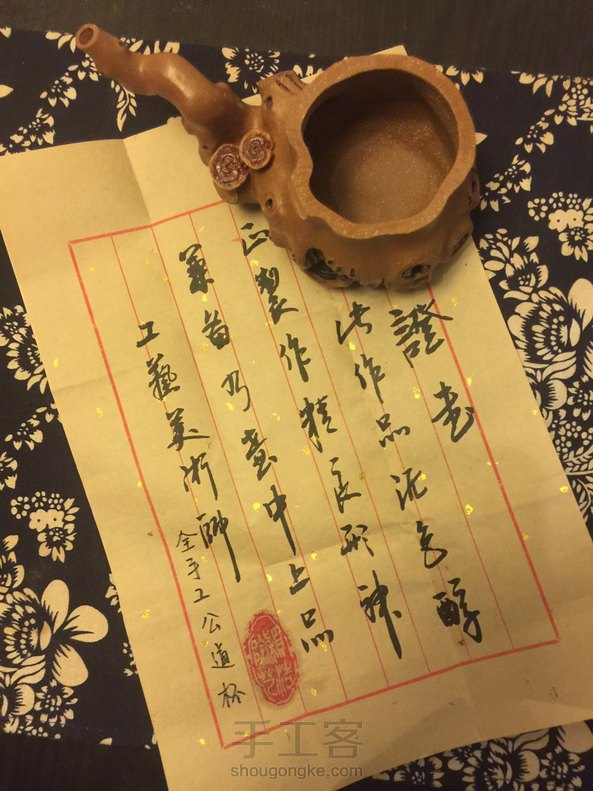 證书
此作品泥色醇
正製作精良形神
兼备乃壶中上品
工藝美術師
全手工公道杯
手工客
shougongke.com